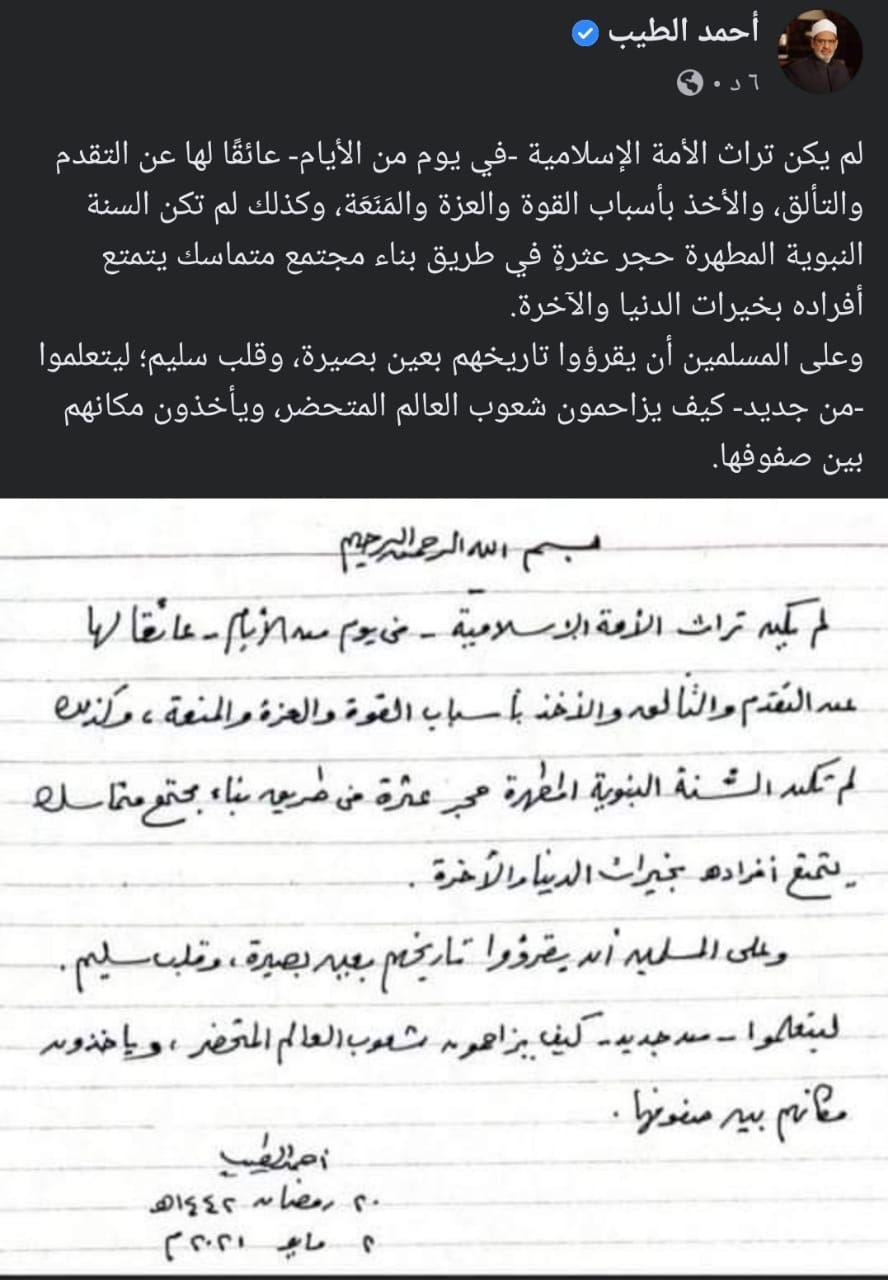 أحمد الطيب
٦ د
لم يكن تراث الأمة الإسلامية -في يوم من الأيام- عائقًا لها عن التقدم
والتألق، والأخذ بأسباب القوة والعزة والمَنَعَة، وكذلك لم تكن السنة
النبوية المطهرة حجر عثرةٍ في طريق بناء مجتمع متماسك يتمتع
أفراده بخيرات الدنيا والآخرة.
وعلى المسلمين أن يقرؤوا تاريخهم بعين بصيرة، وقلب سليم؛ ليتعلموا
-من جديد- كيف يزاحمون شعوب العالم المتحضر، ويأخذون مكانهم
بين صفوفها.
بسم الله الرحمن الرحيم
لم يكن تراث الأمة الإسلامية - في يوم من الأيام - عائقًا لها
عن التقدم والتألق والأخذ بأسباب القوة والعزة والمنعة، وكذلك
لم تكن السُّنة النبوية المطهرة حجر عثرة في طريق بناء مجتمع متماسك
يتمتع أفراده بخيرات الدنيا والآخرة.
وعلى المسلمين أن يقرؤوا تاريخهم بعين بصيرة، وقلب سليم.
ليتعلموا - من جديد - كيف يزاحمون شعوب العالم المتحضر، ويأخذون
مكانهم بين صفوفها.
أحمد الطيب
٢٠ رمضان ١٤٤٢هـ
٢ مايو ٢٠٢١م